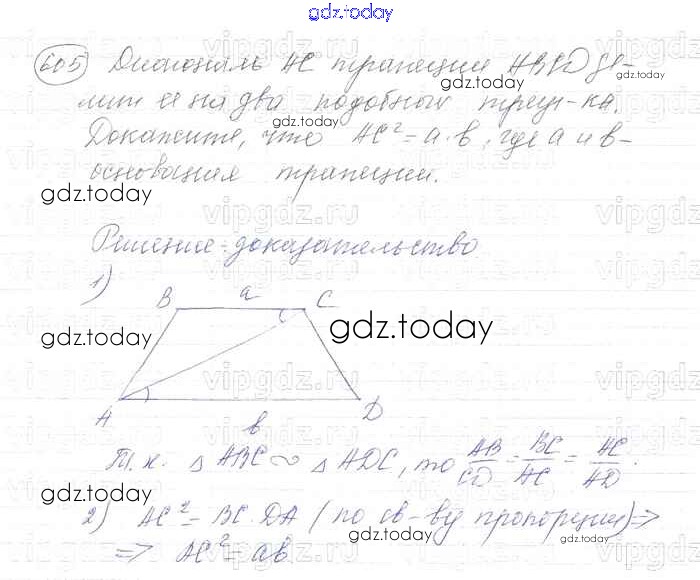 gdz.today
605 Диагональ AC трапеции ABCD де-
лит ее на два подобных треуг-ка.
gdz.today
Докажите, что AC² = a·в, где a и в-
основания трапеции.
gdz.today
Решение-доказательство
1)
B a C
gdz.today
gdz.today
A в D
Т.к. △ ABC ∾ △ ADC, то AB/CD = BC/AC = AC/AD.
gdz.today
2) AC² = BC·DA (по св-ву пропорции) =>
=> AC² = aв
gdz.today